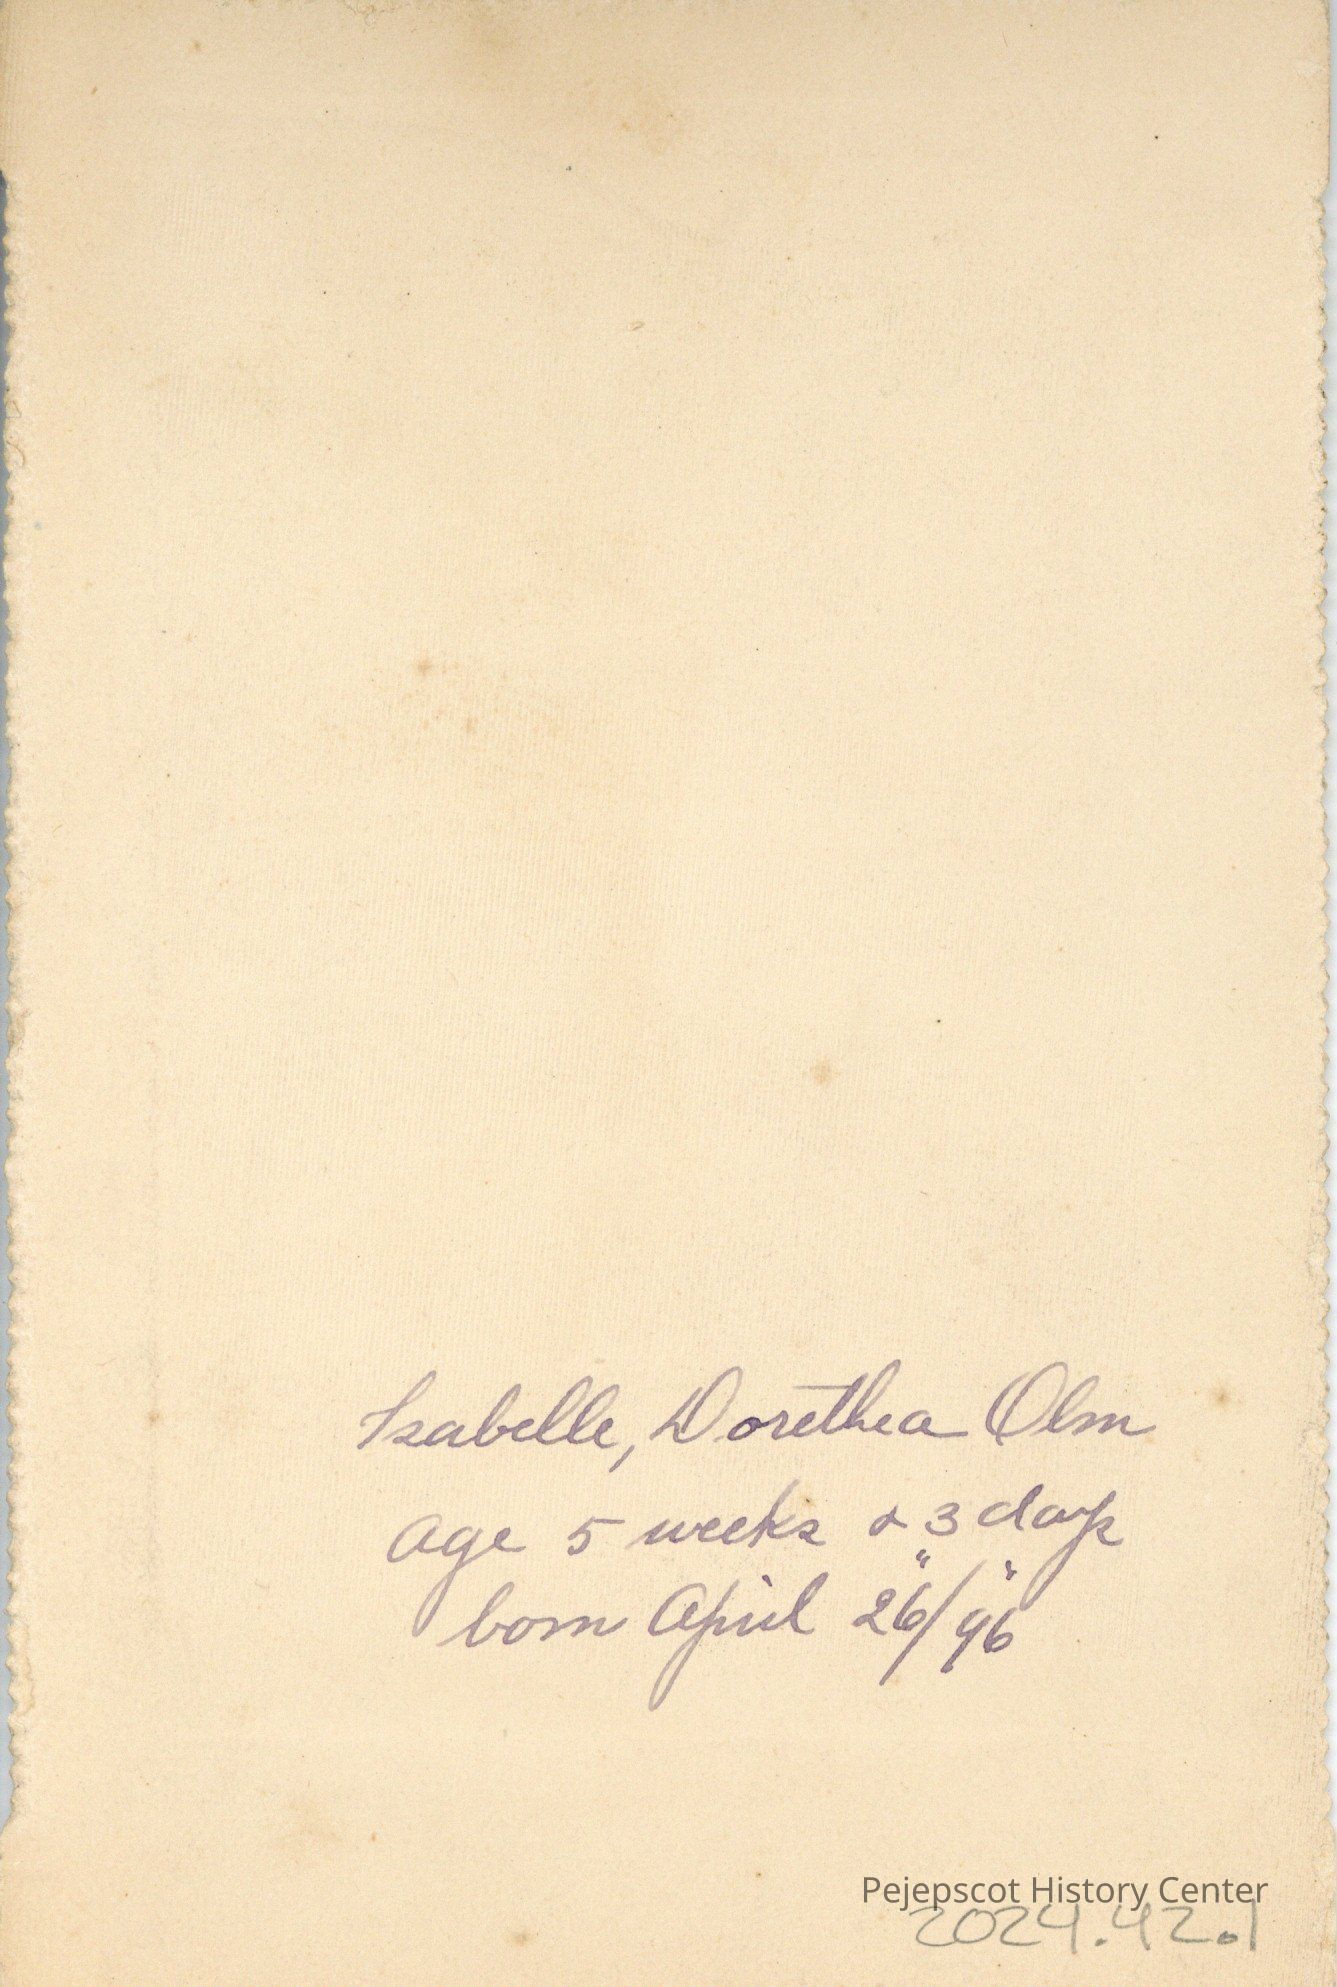 Isabelle, Dorethea Olm
Age 5 weeks & 3 days
born April 26"/96"
Pejepscot History Center
2024.42.1